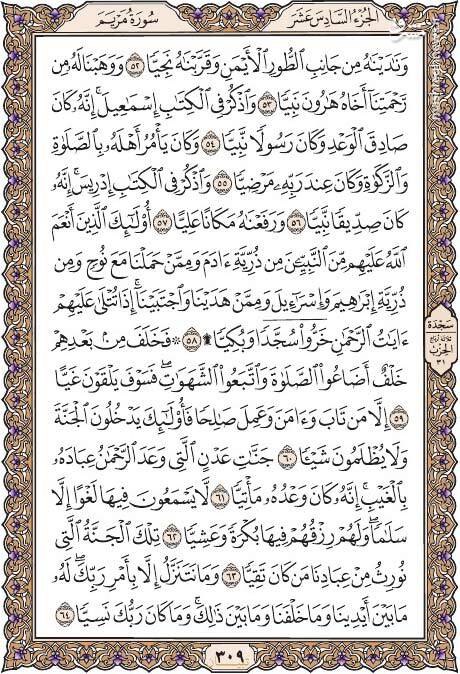 الجزء السادس عشر
سورة مريم
وَنَٰدَيْنَٰهُ مِن جَانِبِ ٱلطُّورِ ٱلْأَيْمَنِ وَقَرَّبْنَٰهُ نَجِيًّا ٥٢ وَوَهَبْنَا لَهُۥ مِن
رَّحْمَتِنَآ أَخَاهُ هَٰرُونَ نَبِيًّا ٥٣ وَٱذْكُرْ فِى ٱلْكِتَٰبِ إِسْمَٰعِيلَ ۚ إِنَّهُۥ كَانَ
صَادِقَ ٱلْوَعْدِ وَكَانَ رَسُولًا نَّبِيًّا ٥٤ وَكَانَ يَأْمُرُ أَهْلَهُۥ بِٱلصَّلَوٰةِ
وَٱلزَّكَوٰةِ وَكَانَ عِندَ رَبِّهِۦ مَرْضِيًّا ٥٥ وَٱذْكُرْ فِى ٱلْكِتَٰبِ إِدْرِيسَ ۚ إِنَّهُۥ
كَانَ صِدِّيقًا نَّبِيًّا ٥٦ وَرَفَعْنَٰهُ مَكَانًا عَلِيًّا ٥٧ أُو۟لَٰٓئِكَ ٱلَّذِينَ أَنْعَمَ
ٱللَّهُ عَلَيْهِم مِّنَ ٱلنَّبِيِّۦنَ مِن ذُرِّيَّةِ ءَادَمَ وَمِمَّنْ حَمَلْنَا مَعَ نُوحٍ وَمِن
ذُرِّيَّةِ إِبْرَٰهِيمَ وَإِسْرَٰٓءِيلَ وَمِمَّنْ هَدَيْنَا وَٱجْتَبَيْنَآ ۚ إِذَا تُتْلَىٰ عَلَيْهِمْ
ءَايَٰتُ ٱلرَّحْمَٰنِ خَرُّوا۟ سُجَّدًا وَبُكِيًّا ۩ ٥٨ ۞ فَخَلَفَ مِنۢ بَعْدِهِمْ
خَلْفٌ أَضَاعُوا۟ ٱلصَّلَوٰةَ وَٱتَّبَعُوا۟ ٱلشَّهَوَٰتِ ۖ فَسَوْفَ يَلْقَوْنَ غَيًّا
٥٩ إِلَّا مَن تَابَ وَءَامَنَ وَعَمِلَ صَٰلِحًا فَأُو۟لَٰٓئِكَ يَدْخُلُونَ ٱلْجَنَّةَ
وَلَا يُظْلَمُونَ شَيْـًٔا ٦٠ جَنَّٰتِ عَدْنٍ ٱلَّتِى وَعَدَ ٱلرَّحْمَٰنُ عِبَادَهُۥ
بِٱلْغَيْبِ ۚ إِنَّهُۥ كَانَ وَعْدُهُۥ مَأْتِيًّا ٦١ لَّا يَسْمَعُونَ فِيهَا لَغْوًا إِلَّا
سَلَٰمًا ۖ وَلَهُمْ رِزْقُهُمْ فِيهَا بُكْرَةً وَعَشِيًّا ٦٢ تِلْكَ ٱلْجَنَّةُ ٱلَّتِى
نُورِثُ مِنْ عِبَادِنَا مَن كَانَ تَقِيًّا ٦٣ وَمَا نَتَنَزَّلُ إِلَّا بِأَمْرِ رَبِّكَ ۖ لَهُۥ
مَا بَيْنَ أَيْدِينَا وَمَا خَلْفَنَا وَمَا بَيْنَ ذَٰلِكَ ۚ وَمَا كَانَ رَبُّكَ نَسِيًّا ٦٤
سجدة
الحزب
٣١
٣٠٩